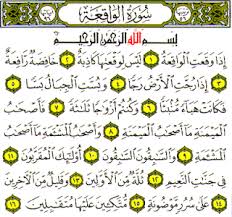 سُورَةُ الوَاقِعَةِ
بِسْمِ اللَّهِ الرَّحْمَٰنِ الرَّحِيمِ
إِذَا وَقَعَتِ الْوَاقِعَةُ ١ لَيْسَ لِوَقْعَتِهَا كَاذِبَةٌ ٢ خَافِضَةٌ رَّافِعَةٌ
٣ إِذَا رُجَّتِ الْأَرْضُ رَجًّا ٤ وَبُسَّتِ الْجِبَالُ بَسًّا ٥
فَكَانَتْ هَبَاءً مُّنبَثًّا ٦ وَكُنتُمْ أَزْوَاجًا ثَلَاثَةً ٧ فَأَصْحَابُ
الْمَيْمَنَةِ مَا أَصْحَابُ الْمَيْمَنَةِ ٨ وَأَصْحَابُ الْمَشْئَمَةِ مَا أَصْحَابُ
الْمَشْئَمَةِ ٩ وَالسَّابِقُونَ السَّابِقُونَ ١٠ أُولَٰئِكَ الْمُقَرَّبُونَ ١١
فِي جَنَّاتِ النَّعِيمِ ١٢ ثُلَّةٌ مِّنَ الْأَوَّلِينَ ١٣ وَقَلِيلٌ مِّنَ الْآخِرِينَ
١٤ عَلَىٰ سُرُرٍ مَّوْضُونَةٍ ١٥ مُّتَّكِئِينَ عَلَيْهَا مُتَقَابِلِينَ ١٦